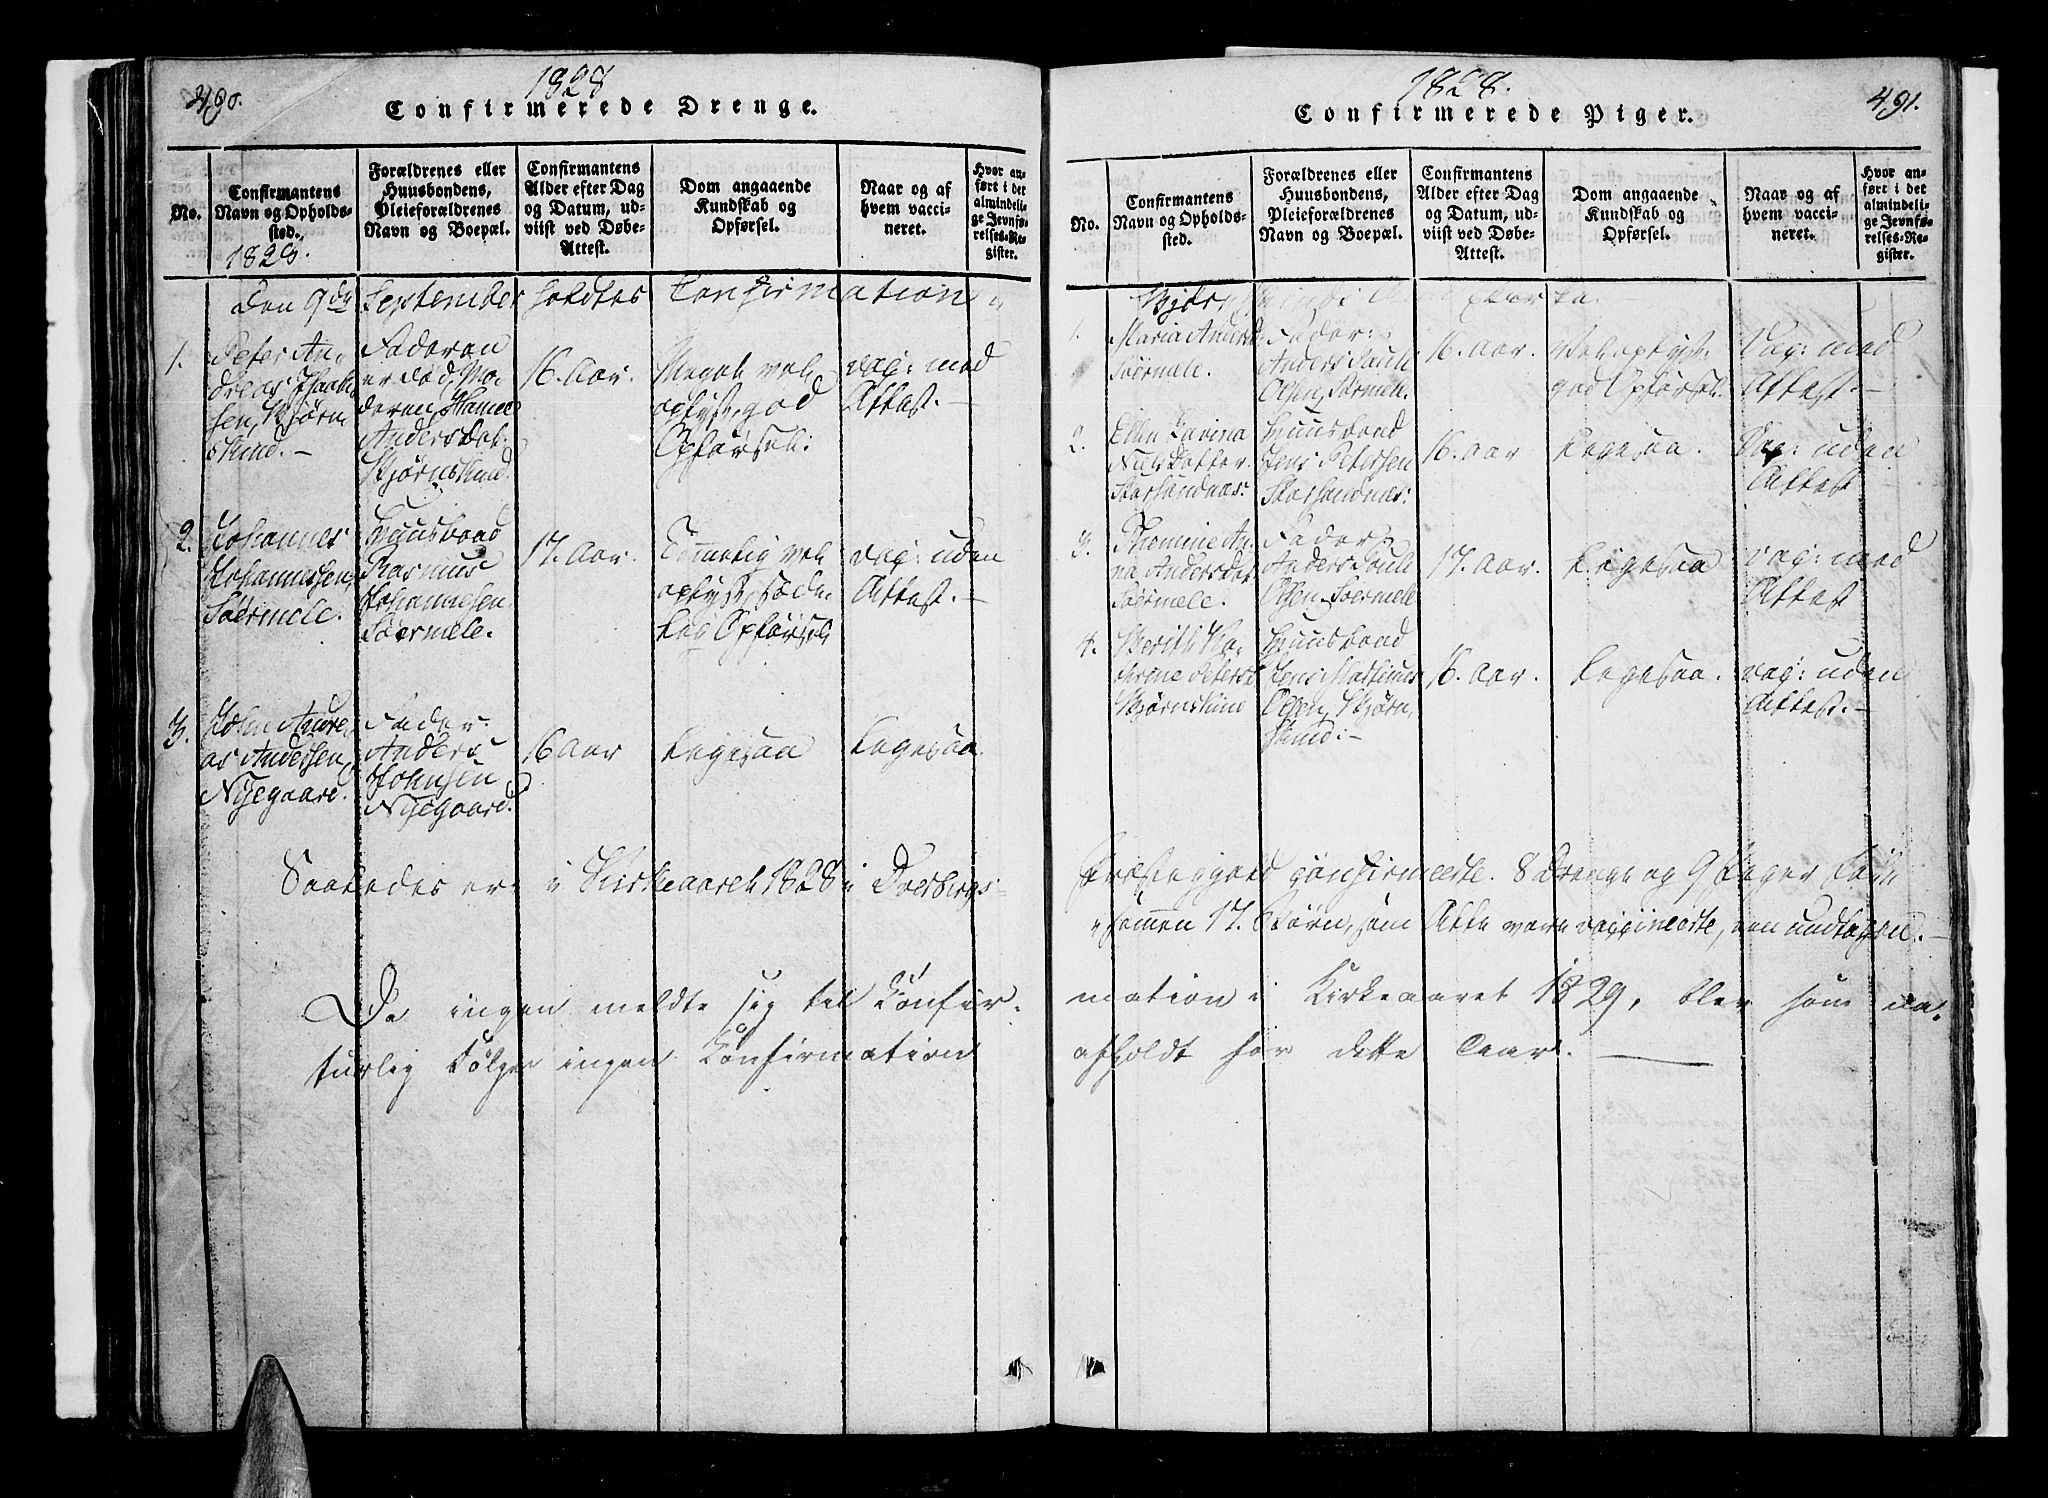 490.
1828
Confirmerede Drenge.
No.
Confirmantens
Navn og Opholds-
sted.
1828.
Forældrenes eller
Huusbondens,
Pleieforældrenes
Navn og Boepæl.
Confirmantens
Alder efter Dag
og Datum, ud-
viist ved Døbe-
Attest.
Dom angaaende
Kundskab og
Opførsel.
Naar og af
hvem vacci-
neret.
Hvor an-
ført i det
almindeli-
ge Jevnfø-
relses-Re-
gister.
Den 9de September holdtes Confirmation
1.
Peter An-
dreas Isaak-
sen, Skjørn
skind.-
Faderen
er død, Mo-
deren
Andersdat:
Skjørnskind.
16. Aar.
Meget vel
oplyst, god
Opførsel:
vac: med
Attest.-
2.
Johannes
Johannessen,
Sørmele.
Huusbond
Rasmus
Johannesen
Sørmele.
17. Aar.
Temmelig vel
oplyst, sæde-
lig Opførsel
vac: uden
Attest.-
3.
John Andre-
as Andersen,
Nyegaard.
Fader:
Anders
Johnsen
Nyegaard.
16 Aar
Ligesaa
Ligesaa.
Saaledes er i Kirkeaaret 1828 i Dverbergs
Da ingen meldte sig til Confir-
turlig Følge ingen Confirmation
1828.
491.
Confirmerede Piger.
No.
Confirmantens
Navn og Opholds-
sted.
Forældrenes eller
Huusbondens,
Pleieforældrenes
Navn og Boepæl.
Confirmantens
Alder efter Dag
og Datum, ud-
viist ved Døbe-
Attest.
Dom angaaende
Kundskab og
Opførsel.
Naar og af
hvem vacci-
neret.
Hvor an-
ført i det
almindeli-
ge Jevnfø-
relses-Re-
gister.
1.
Maria Andersd:
Sørmele.
Fader:
Anders Paule
Olsen, Sørmele.
16. Aar.
Vel oplyst:
god Opførsel.
Vac: med
Attest.-
2.
Ellen Lavina
Nilsdatter
Storsandnæs:
Huusbond
Jens Petersen
Storsandnes:
16. Aar
Ligesaa.
Vac: uden
Attest
3.
Themine An-
na Andersdat
Sørmele.
Fader
Anders Paule
Olsen Sørmele
17. Aar.
Ligesaa
vac: med
Attest
4.
Berith Ka-
thrine Petersd
Skjørnskind
Huusbond
Jens Mathias
Olsen, Skjørn,
skind:-
16. Aar.
Ligesaa.
vac: uden
Attest.-
Præstegjeld confirmerte. 8 Drenge og 9 Piger
sammen 17. Børn, som Alle vare vaccinerte, een undtagen.-
mation i Kirkeaaret 1829, blev som na-
afholdt for dette Aar.